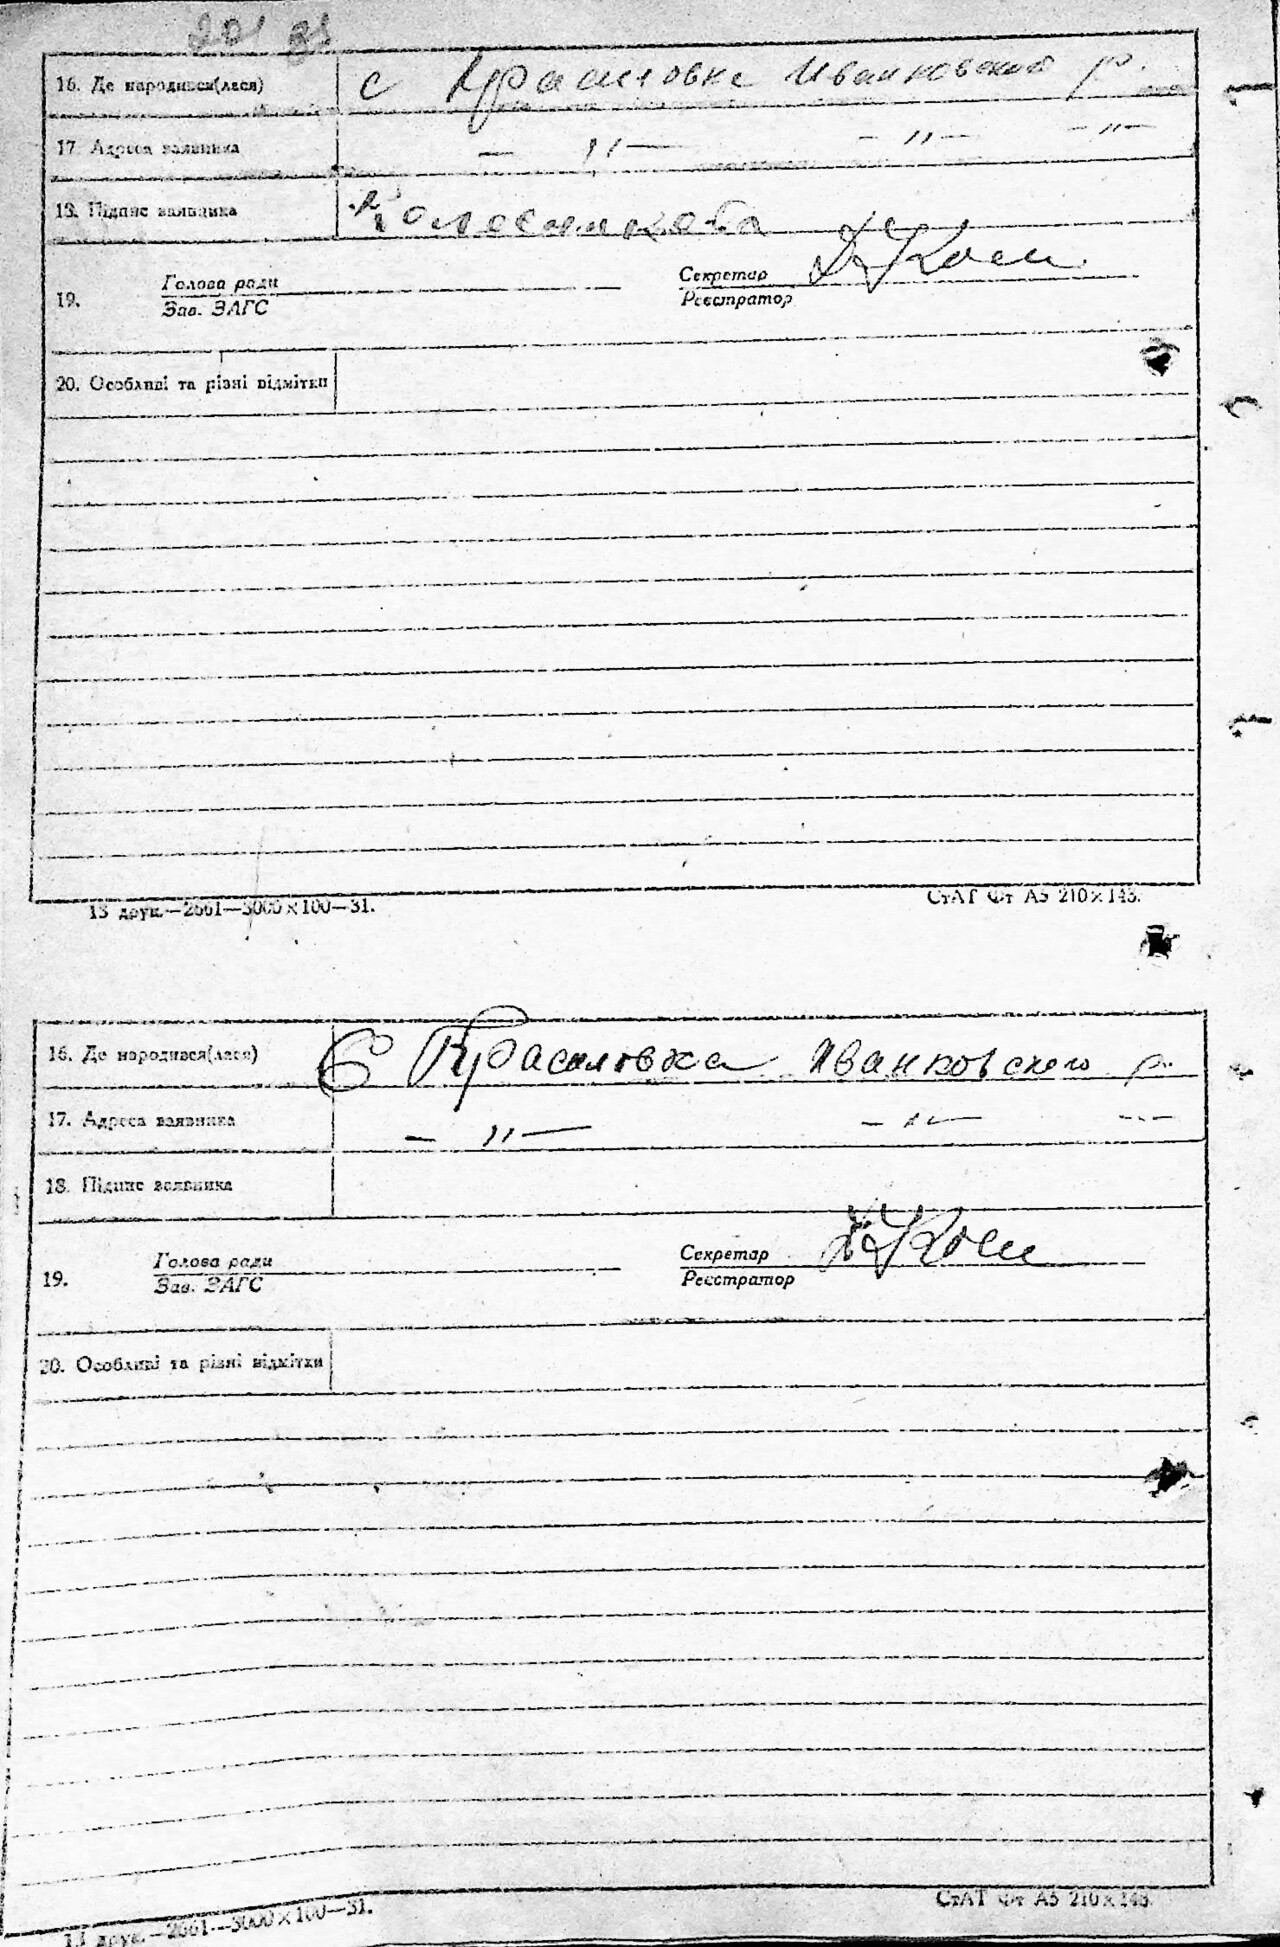 201 31
16. Де народився(лася) с Красиловка Иванковский р.
17. Адреса заявника — " — — " — — " —
18. Підпис заявника Колесникова
19. Голова ради Секретар
Зав. ЗАГС Реєстратор
20. Особливі та різні відмітки
13 друк.—2661—3000×100—31. СтАТ Фт А5 210×148.
16. Де народився(лася) С Красиловка Иванковского р.
17. Адреса заявника — " — — " — — " —
18. Підпис заявника
19. Голова ради Секретар
Зав. ЗАГС Реєстратор
20. Особливі та різні відмітки
13 друк.—2661—3000×100—31. СтАТ Фт А5 210×148.